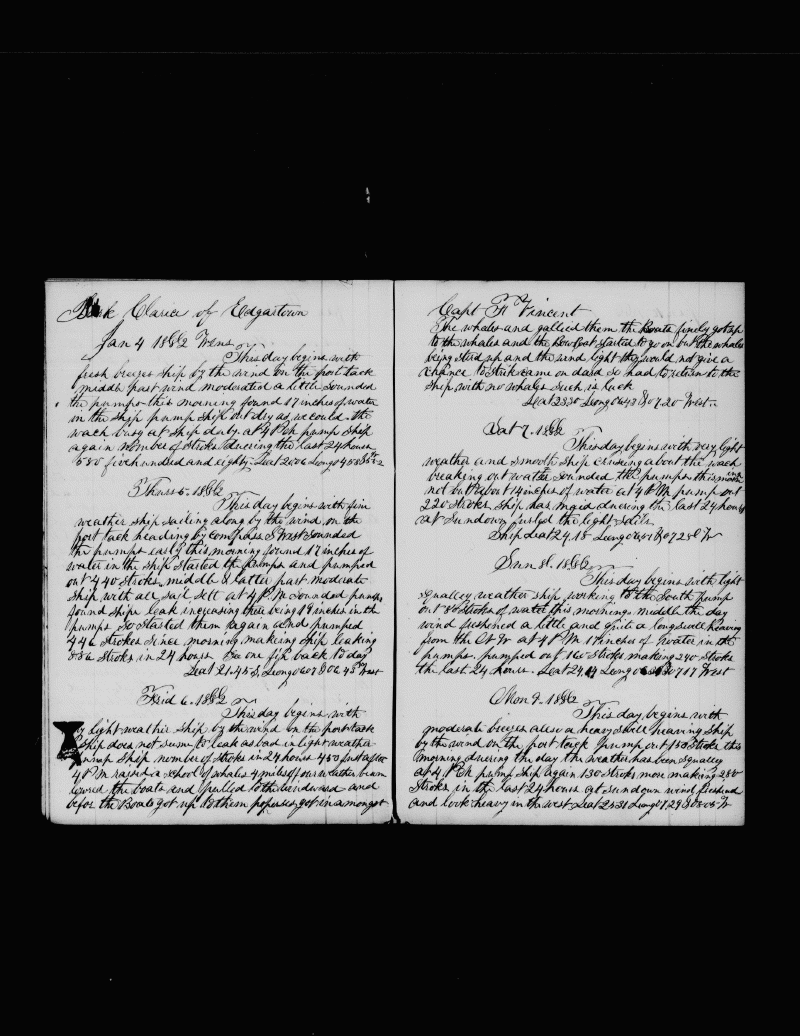 Bark Clarice of Edgartown
Jan 4 1882 Wens
This day begins with
fresh breeze ship by the wind on the port tack
middle part wind moderated a little sounded
the pumps this morning found 17 inches of water
in the ship pump ship out dry as we could the
wach busy at ship duty at 4 P.M. pump ship
again number of Stroks duering the last 24 hours
580 five hundred and eighty Leat
Thurs 5. 1882
This day begins with fine
weather ship sailing along by the wind on the
port tack heading by compass S West sounded
the pumps early this morning found 17 inches of
water in the ship started the pumps and pumped
out 440 Stroks middle & latter part moderate
Ship with all sail sett at 4 P.M. sounded pumps
found ships leak increasing there being 19 inches in the
pumps so started them again and pumped
446 strokes since morning making ship leaking
886 Stroks in 24 hours See one fin back to day
Leat 21.45 S, Leong West
Frid 6. 1882
This day begins with
light weather ship by the wind on the port tack
Ship does not seem to leak as bad in light weather
pump ship number of Stroks in 24 hours 450 just after
4 P.M. raised a school of whales 4 miles off our weather beam
lowered the boats and pulled to the windward and
befor the Boats got up to them got in amongst
Capt F Vincent
the whales and gallied them the Boats finely got up
to the whales and the Bow Boat started to go on but the whales
being stired up and the wind light they would not give a
chance to strike came on dark so had to return to the
ship with no whales such is luck
Leat 23.30 Leong 0643 07.20 West
Sat 7. 1882
This day begins with very light
weather and smooth ship crusing about the wach
breaking out water sounded the pumps this morning
not but about 14 inches of water at 4 P.M. pump out
220 Stroks Ship has maid duering the last 24 hours
at Sundown furled the light sails
Ship Leat 24.18 Leong W
Sun 8. 1882
This day begins with light
squalley weather ship working to the South pump
out 80 Stroks of water this morning middle the day
wind freshened a little and quite a long swell heaving
from the at 4 P.M. 17 inches of water in the
pumps. pumped out 160 Stroks making 240 Stroks
the last 24 hours. Leat Leong West
Mon 9. 1882
This day begins with
moderate breeze allso a heavy swell heaving Ship
by the wind on the port tack pump out 150 Stroks this
morning duering the day the weather has been squalley
at 4 P.M. pump ship again 130 Stroks more making 280
Stroks in the last 24 hours at sundown wind freshend
and look heavy in the west Leat 25.31 Leong W